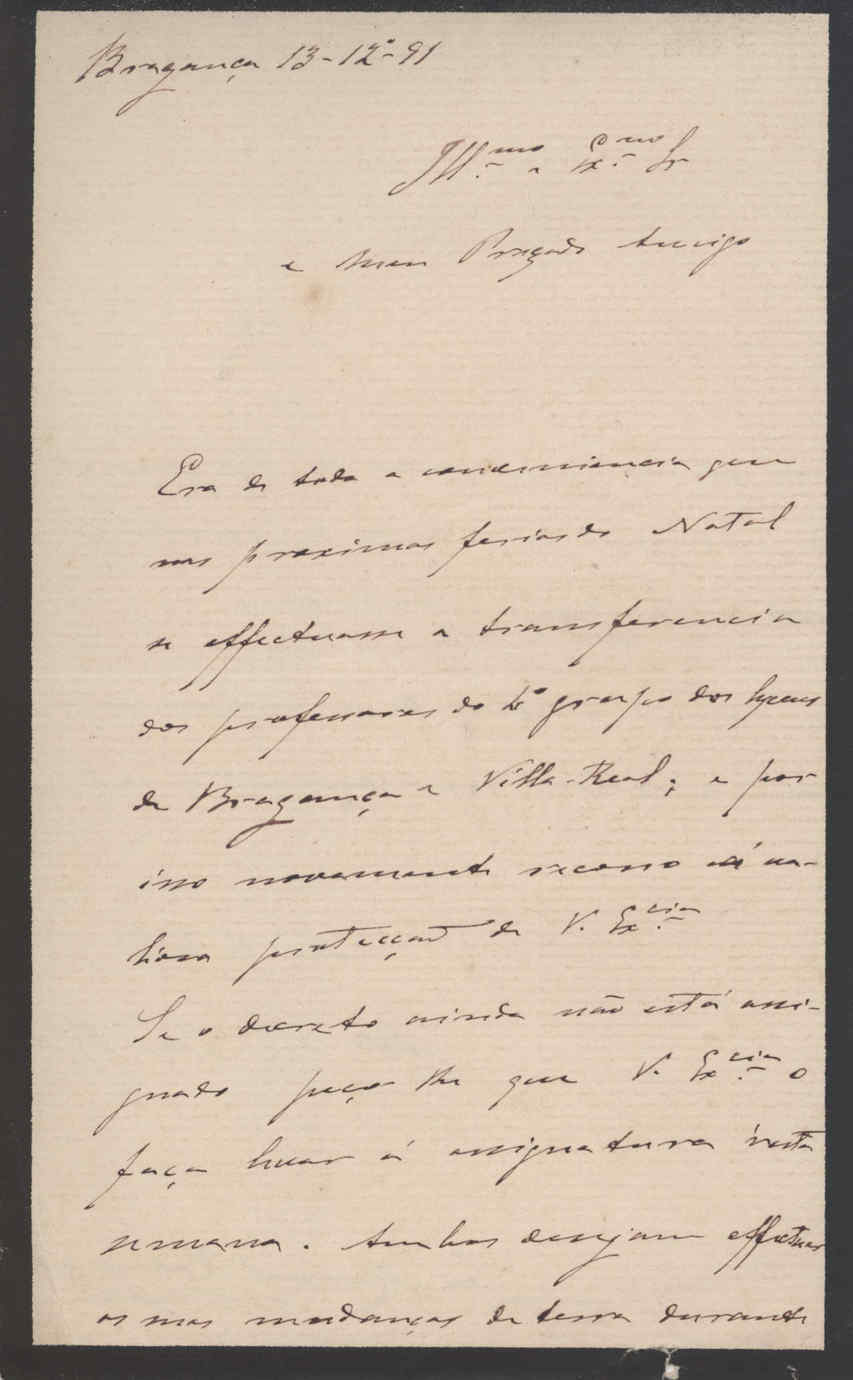 Bragança 13-12º-91
Ill.mo e Ex.mo Sr
e meu Prezado Amigo
Era de toda a conveniencia que
nas proximas ferias do Natal
se effectuasse a transferencia
dos professores do 6º grupo dos lyceus
de Bragança e Villa-Real; e por
isso novamente recorro á va-
liosa protecção de V. Ex.cia
Se o decreto ainda não está assi-
gnado peço lhe que V. Ex.cia o
faça levar á assignatura n'esta
semana. Ambos desejam effectuar
as suas mudanças de terra durante